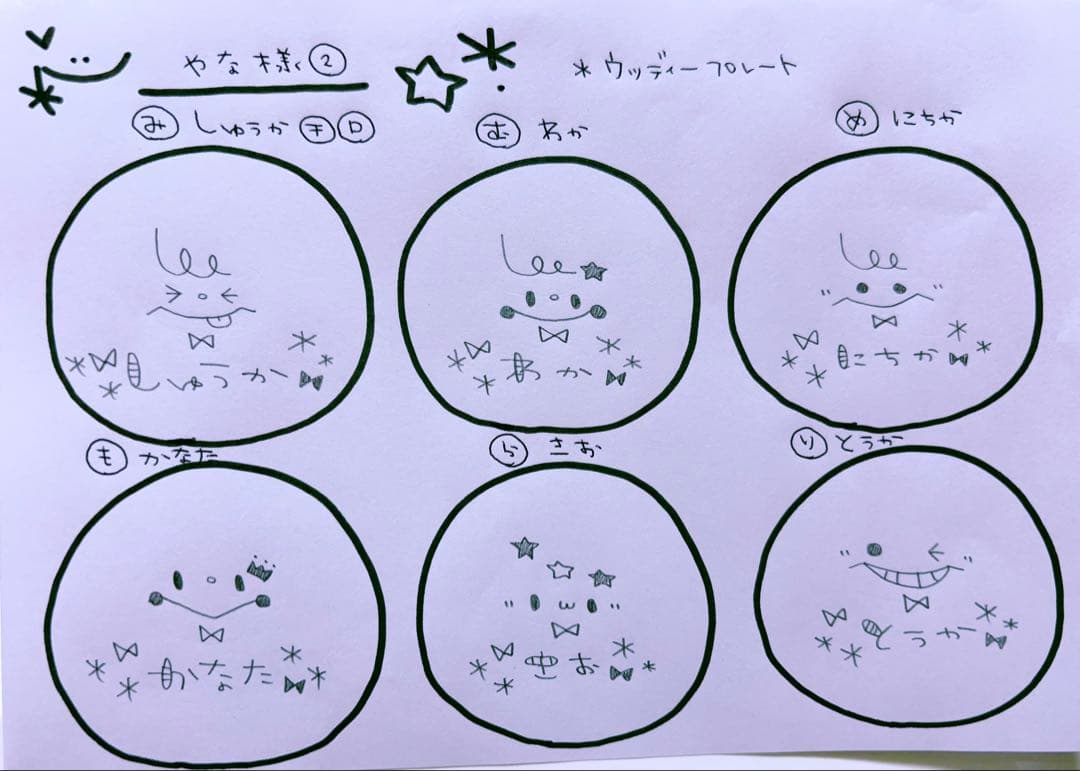 やな様②
* ウッディープレート
み しゅうか チ ロ
む あか
め にちか
しゅうか
あか
にちか
も かなた
ら さお
り とうか
かなた
さお
とうか